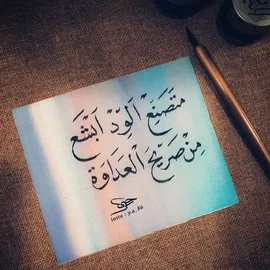 متصنع الود ابشع
من صريح العداوة